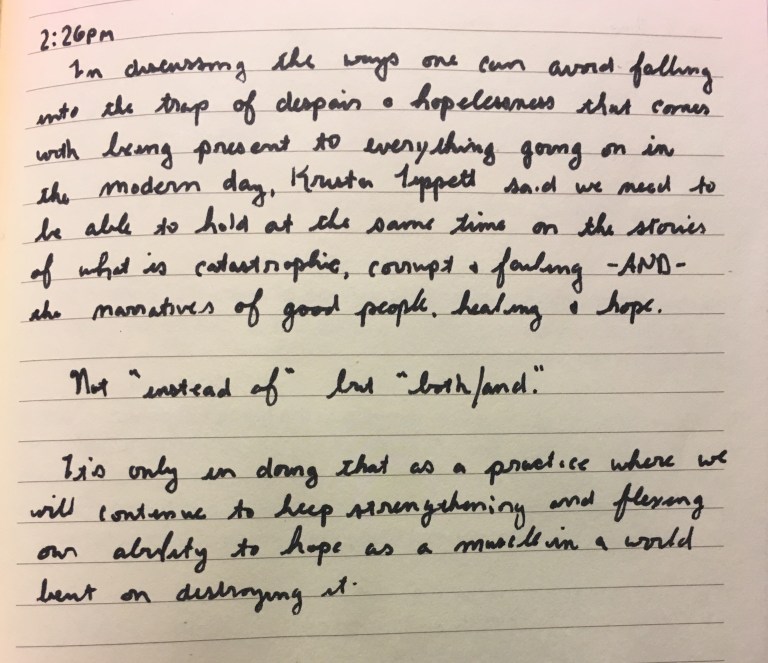 2:26pm
In discussing the ways one can avoid falling
into the trap of despair & hopelessness that comes
with being present to everything going on in
the modern day, Krista Tippett said we need to
be able to hold at the same time on the stories
of what is catastrophic, corrupt & failing -AND-
the narratives of good people, healing & hope.
Not "instead of" but "both/and."
It's only in doing that as a practice where we
will continue to keep strengthening and flexing
our ability to hope as a muscle in a world
bent on destroying it.